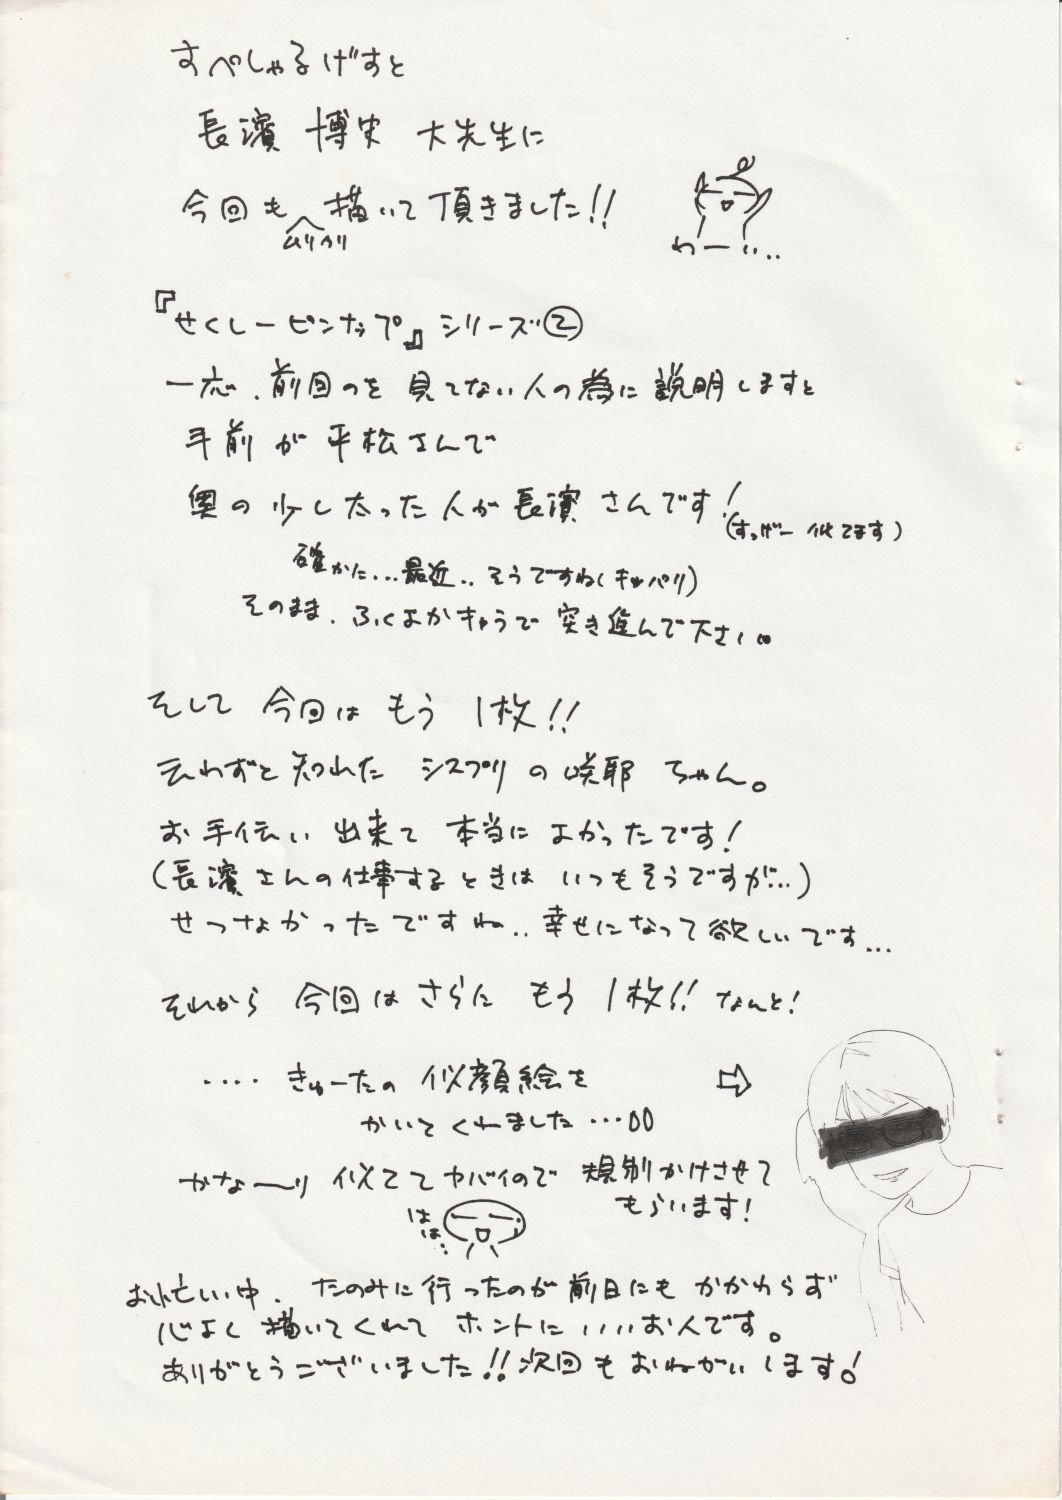 すぺしゃるげすと
長濱 博史 大先生に
今回も 描いて頂きました!!
ムリヤリ
わーい..
『せくしーピンナップ』シリーズ②
一応、前回のを見てない人の為に説明しますと
手前が平松さんで
奥の少し太った人が長濱さんです!
(すっげー似てます)
確かに...最近..そうですね(キッパリ)
そのまま、ふくよかきゃらで突き進んで下さい。
そして 今回は もう 1枚!!
云わずと知れた シスプリの咲耶ちゃん。
お手伝い出来て本当によかったです!
(長濱さんの仕事するときはいつもそうですが...)
せつなかったですね..幸せになって欲しいです...
それから 今回はさらに もう 1枚!! なんと!
....きゅーたの似顔絵を
かいてくれました...
かな〜り似ててヤバイので 規制かけさせて
もらいます!
はは...
お忙しい中、たのみに行ったのが前日にもかかわらず
心よく描いてくれてホントにいいお人です。
ありがとうございました!!次回もおねがいします!